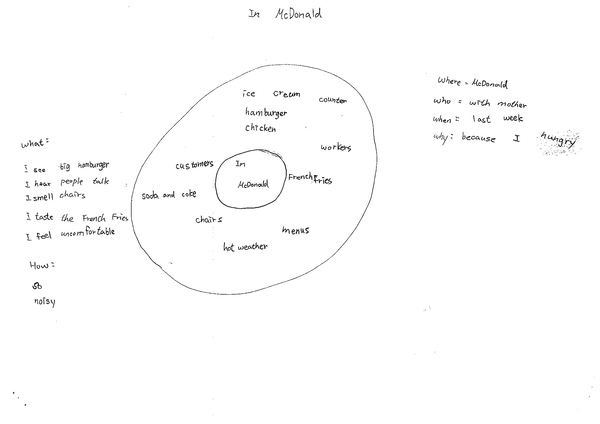 In McDonald
ice cream
counter
hamburger
chicken
workers
customers
In
McDonald
French Fries
soda and coke
chairs
menus
hot weather
what:
I see big hamburger
I hear people talk
I smell chairs
I taste the French Fries
I feel uncomfortable
How:
so
noisy
where = McDonald
who = with mother
when = last week
why: because I hungry